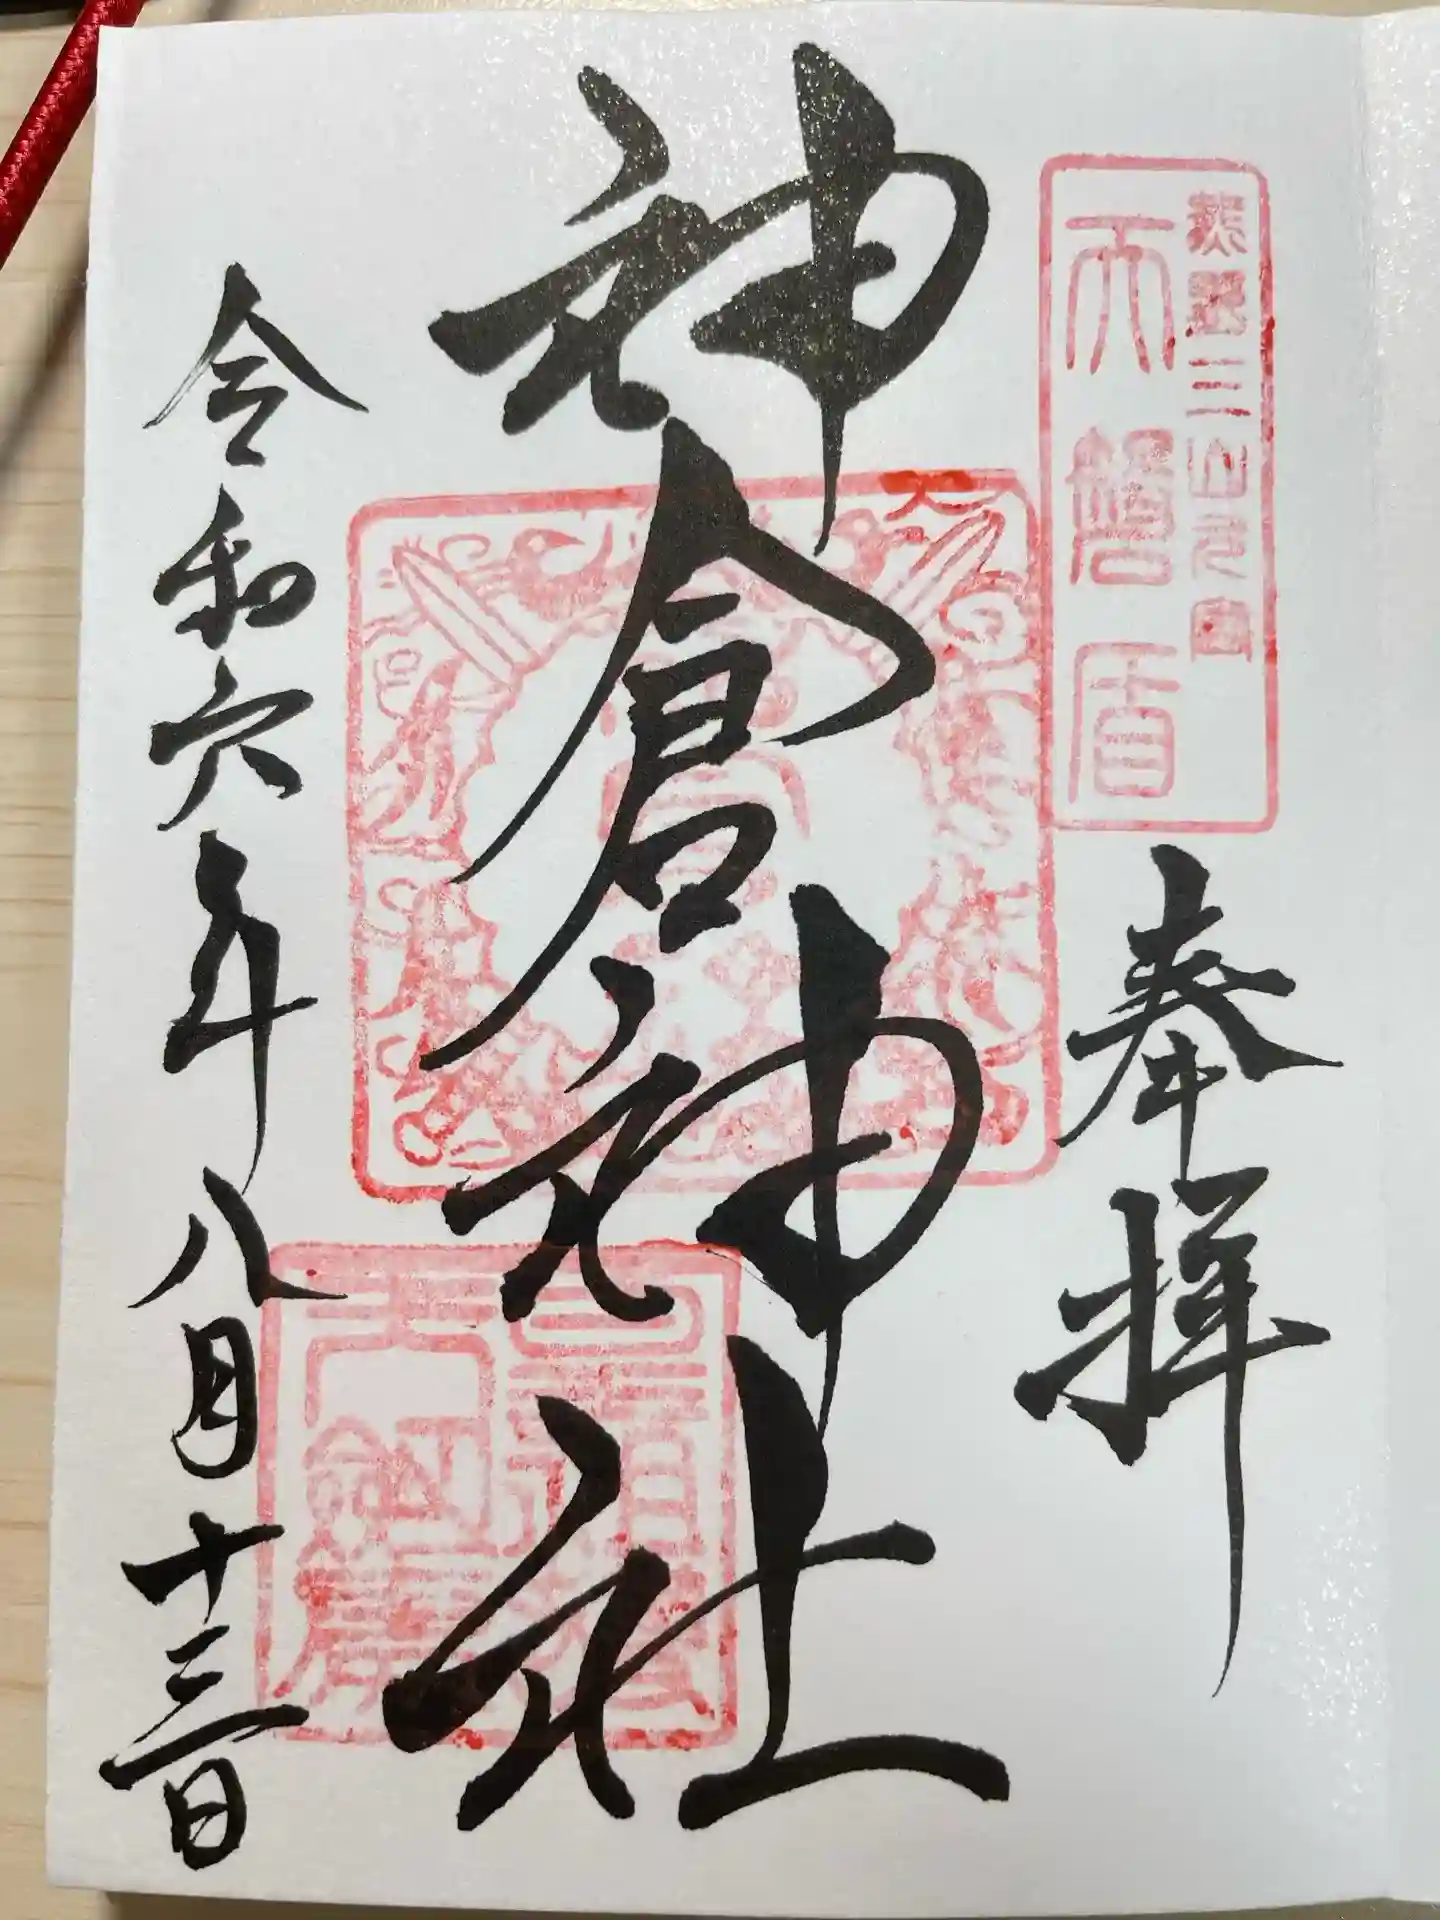 熊野三山元宮
天磐盾
奉拝
神倉神社
令和六年八月十三日